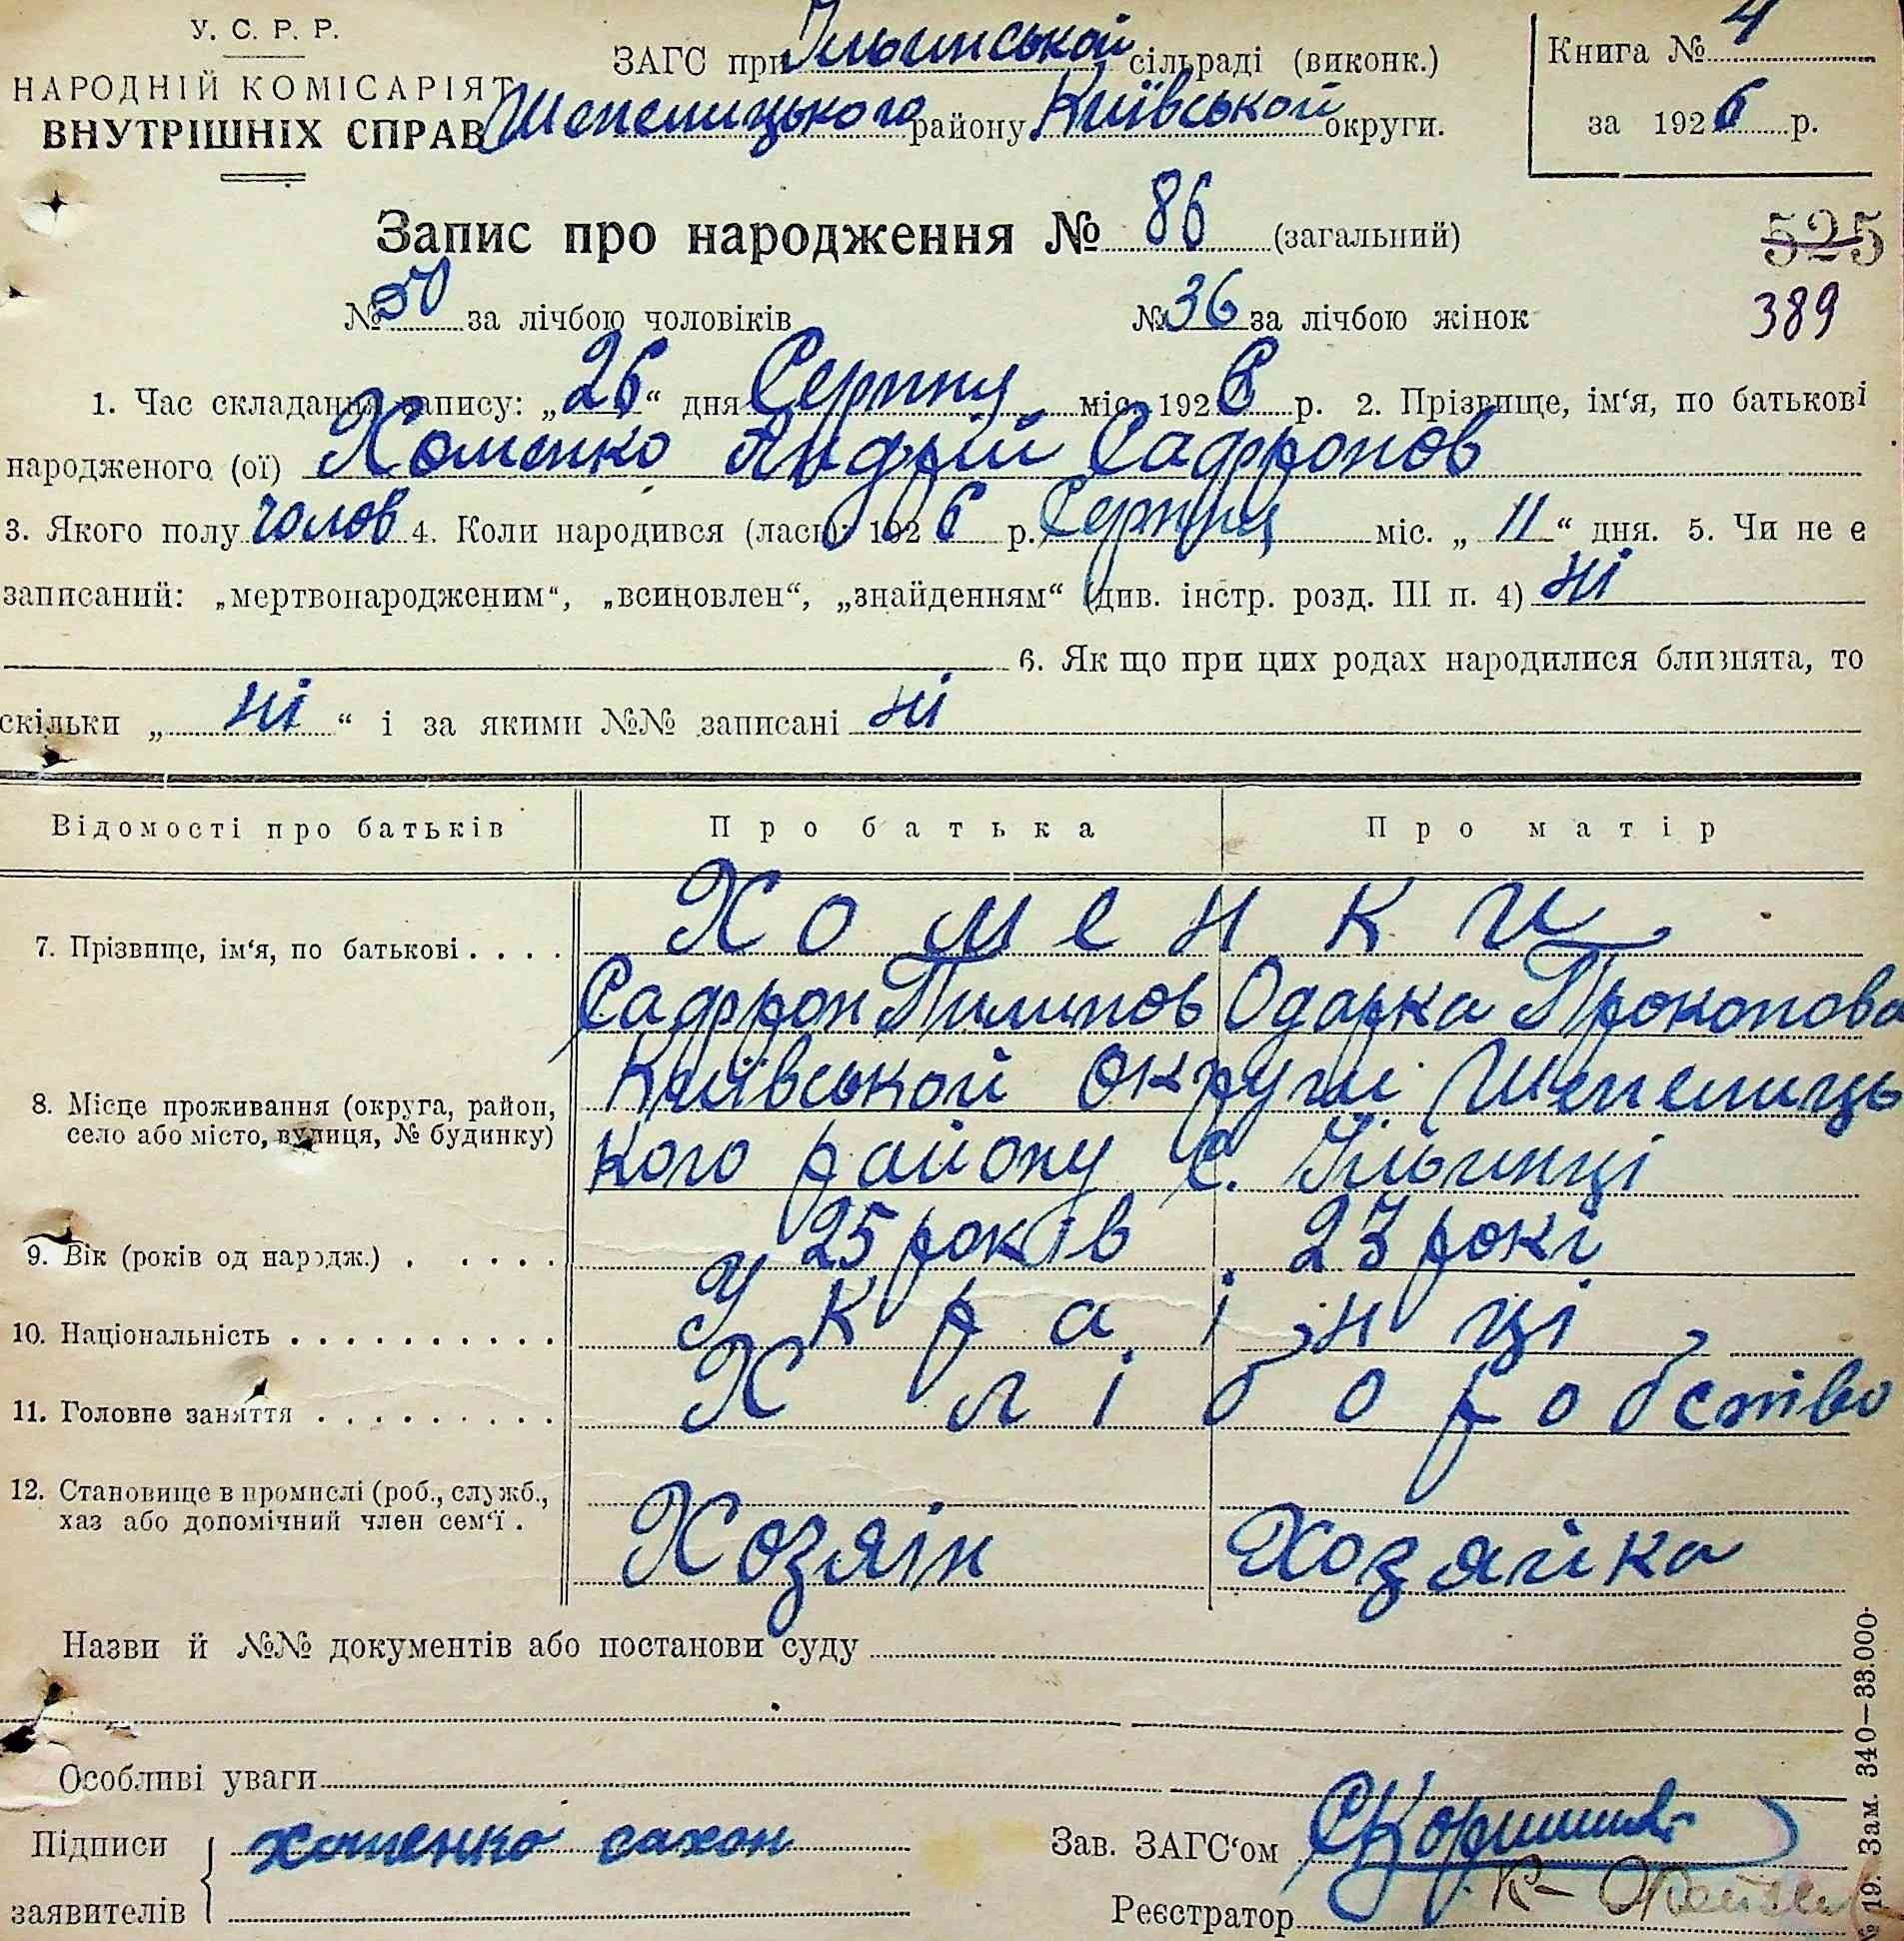 У. С. Р. Р.
НАРОДНІЙ КОМІСАРІЯТ
ВНУТРІШНІХ СПРАВ
ЗАГС при Ільинськой сільраді (виконк.)
Шепелицького району Київськой округи.
Книга № 4
за 1926 р.
Запис про народження № 86 (загальний)
525
№ 50 за лічбою чоловіків № 36 за лічбою жінок
389
1. Час складання запису: „26“ дня Серпня міс. 1926 р. 2. Прізвище, ім‘я, по батькові
народженого (ої) Хоменко Андрій Сафронов
3. Якого полу чолов 4. Коли народився (лась): 1926 р. Серпня міс. „11“ дня. 5. Чи не є
записаний: „мертвонародженим“, „всиновлен“, „знайденням“ (див. інстр. розд. III п. 4) ні
6. Як що при цих родах народилися близнята, то
скільки „ ні “ і за якими №№ записані ні
Відомості про батьків Про батька Про матір
7. Прізвище, ім‘я, по батькові . . . . Хоменки
Сафрон Пилипов Одарка Прокопова
8. Місце проживання (округа, район, село або місто, вулиця, № будинку) Київськой округи Шепелиць
кого району С. Ільинці
9. Вік (років од народж.) . . . . . 25 років 23 рокі
10. Національність . . . . . . . . . . . Українці
11. Головне заняття . . . . . . . . . . Хліборобство
12. Становище в промислі (роб., служб.,
хаз або допомічний член сем‘ї . Хозяін Хозяйка
Назви й №№ документів або постанови суду
Особливі уваги
Підписи хоменко сахон
заявителів
Зав. ЗАГС‘ом
Реєстратор
№ 19. Зам. 340—33.000.